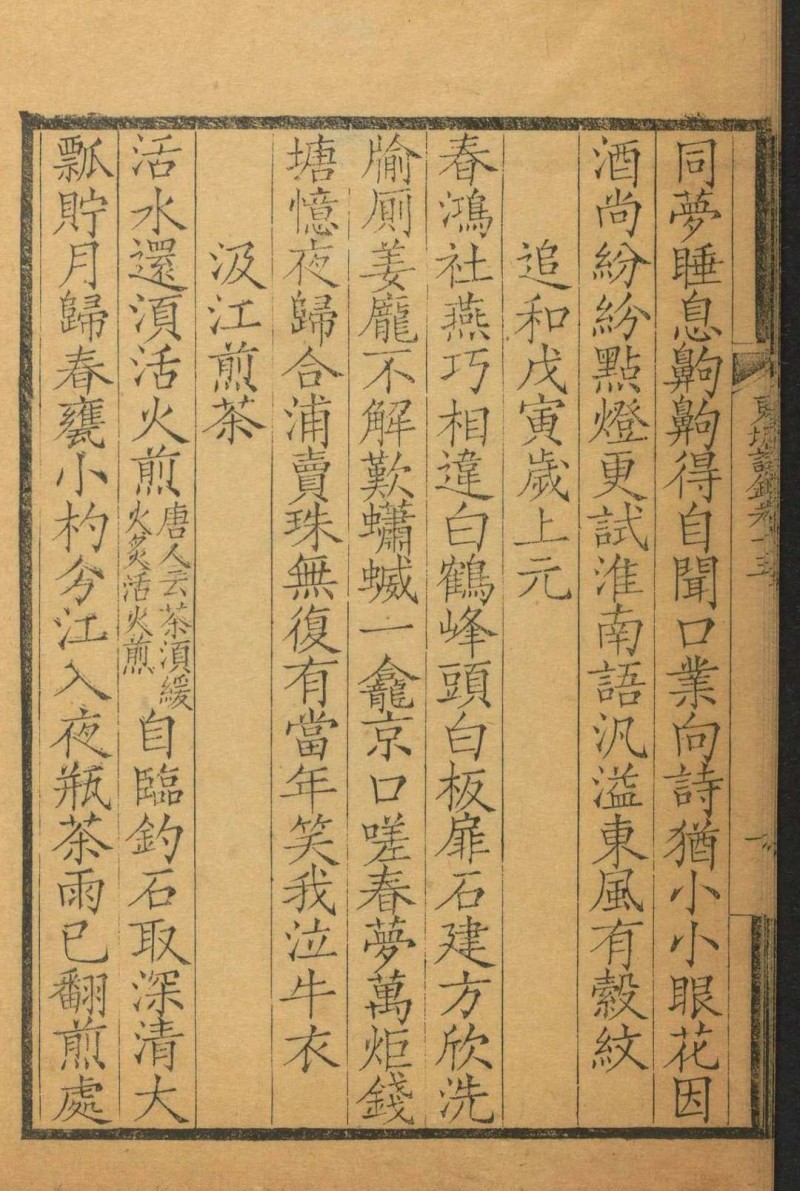 同夢睡息齁齁得自聞口業向詩猶小小眼花因
酒尚紛紛點燈更試淮南語汎溢東風有縠紋
追和戊寅歲上元
春鴻社燕巧相違白鶴峰頭白板扉石建方欣洗
牏厠姜龐不解歎蠨蠛一龕京口嗟春夢萬炬錢
塘憶夜歸合浦賣珠無復有當年笑我泣牛衣
汲江煎茶
活水還湏活火煎唐人云茶湏緩火炙活火煎自臨釣石取深清大
瓢貯月歸春甕小杓分江入夜瓶茶雨已翻煎處